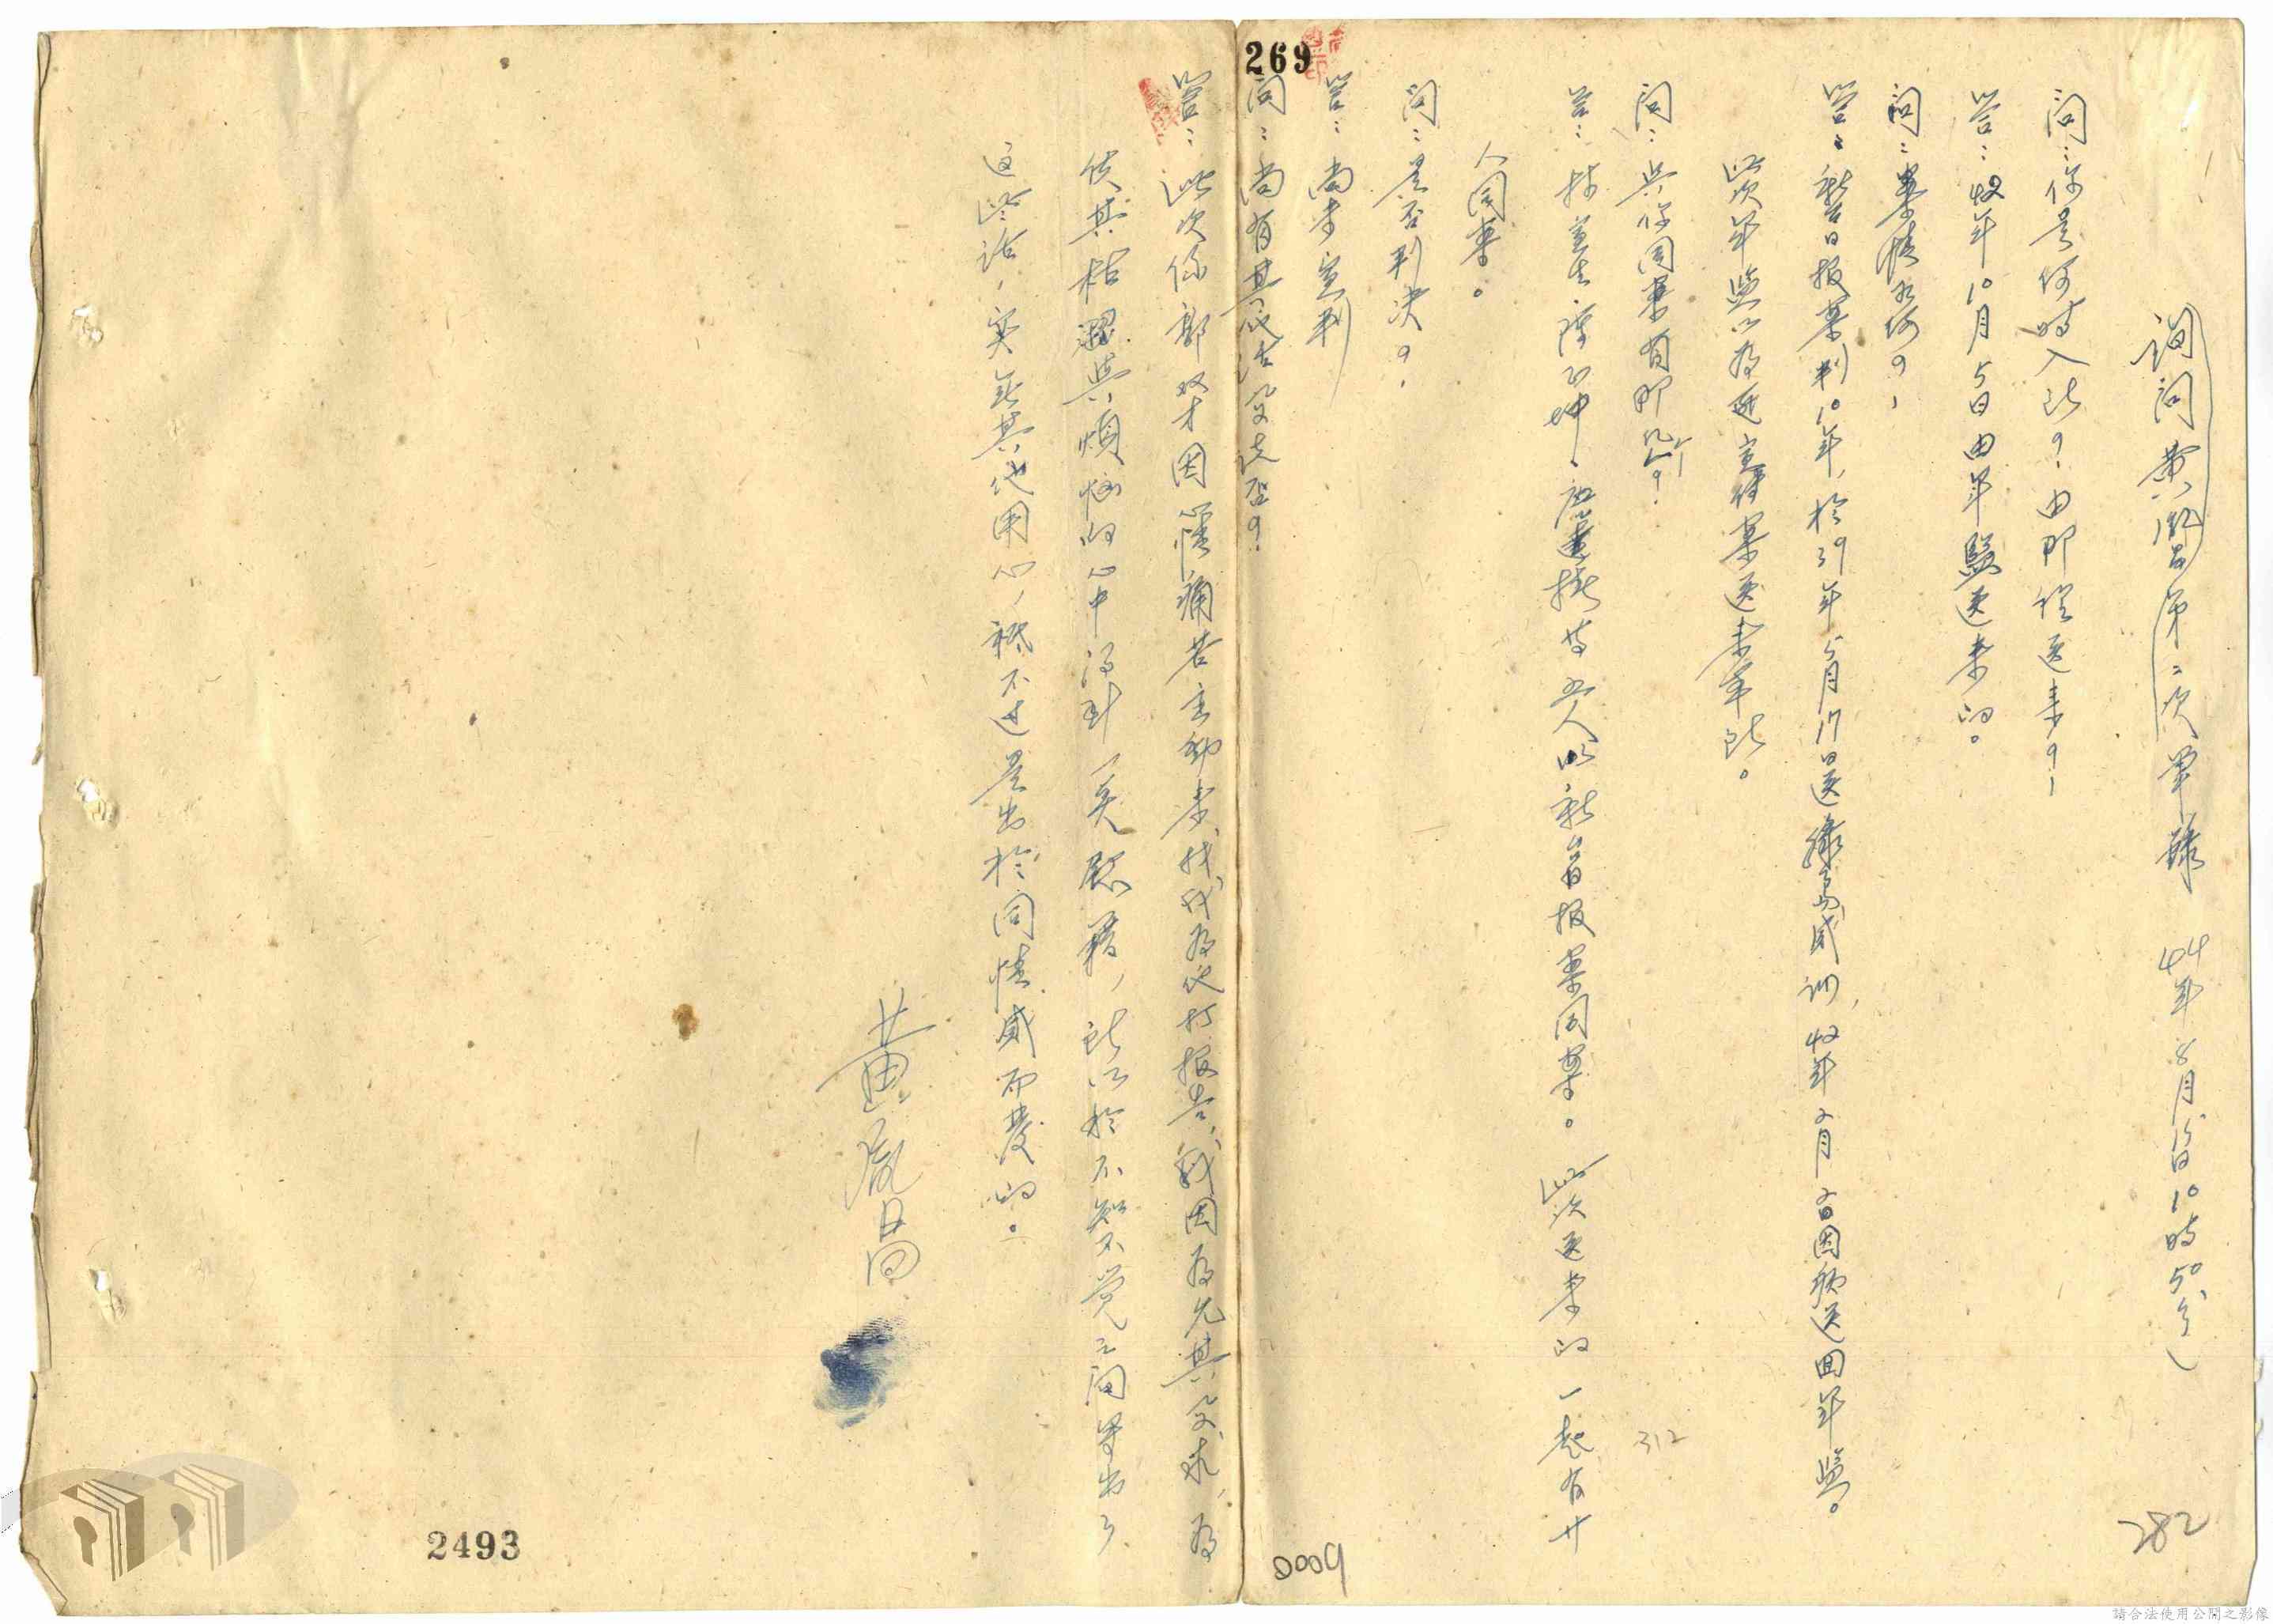 詢問黃胤昌第二次筆錄 44年8月15日10時50分
問：你是何時入所？由那裡送來？
答：42年10月5日由軍監送來的。
問：案情如何？
答：新台日報案判10年，於39年5月17日送綠島感訓，42年2月2日因病送回軍監。
此次軍監以為匪宣傳案送來軍所。
問：與你同案有那些？
答：林宣生 陳 等 人以新台日報案同案。此次送來的一起有廿
人同案。
問：是否判決？
答：尚未宣判
269
問：尚有其他話要說否？
答：此次係鄭 才因 痛苦主動來找我為他打報告，我因為允其要求，為
使其枯燥與煩惱的心中得到一美慰藉，所以於不知不覺之間寫出了
這些話，實無其他用心，祗不過是出於同情感而發的。
黃胤昌
312
282
0009
2493
請合法使用公開之影像